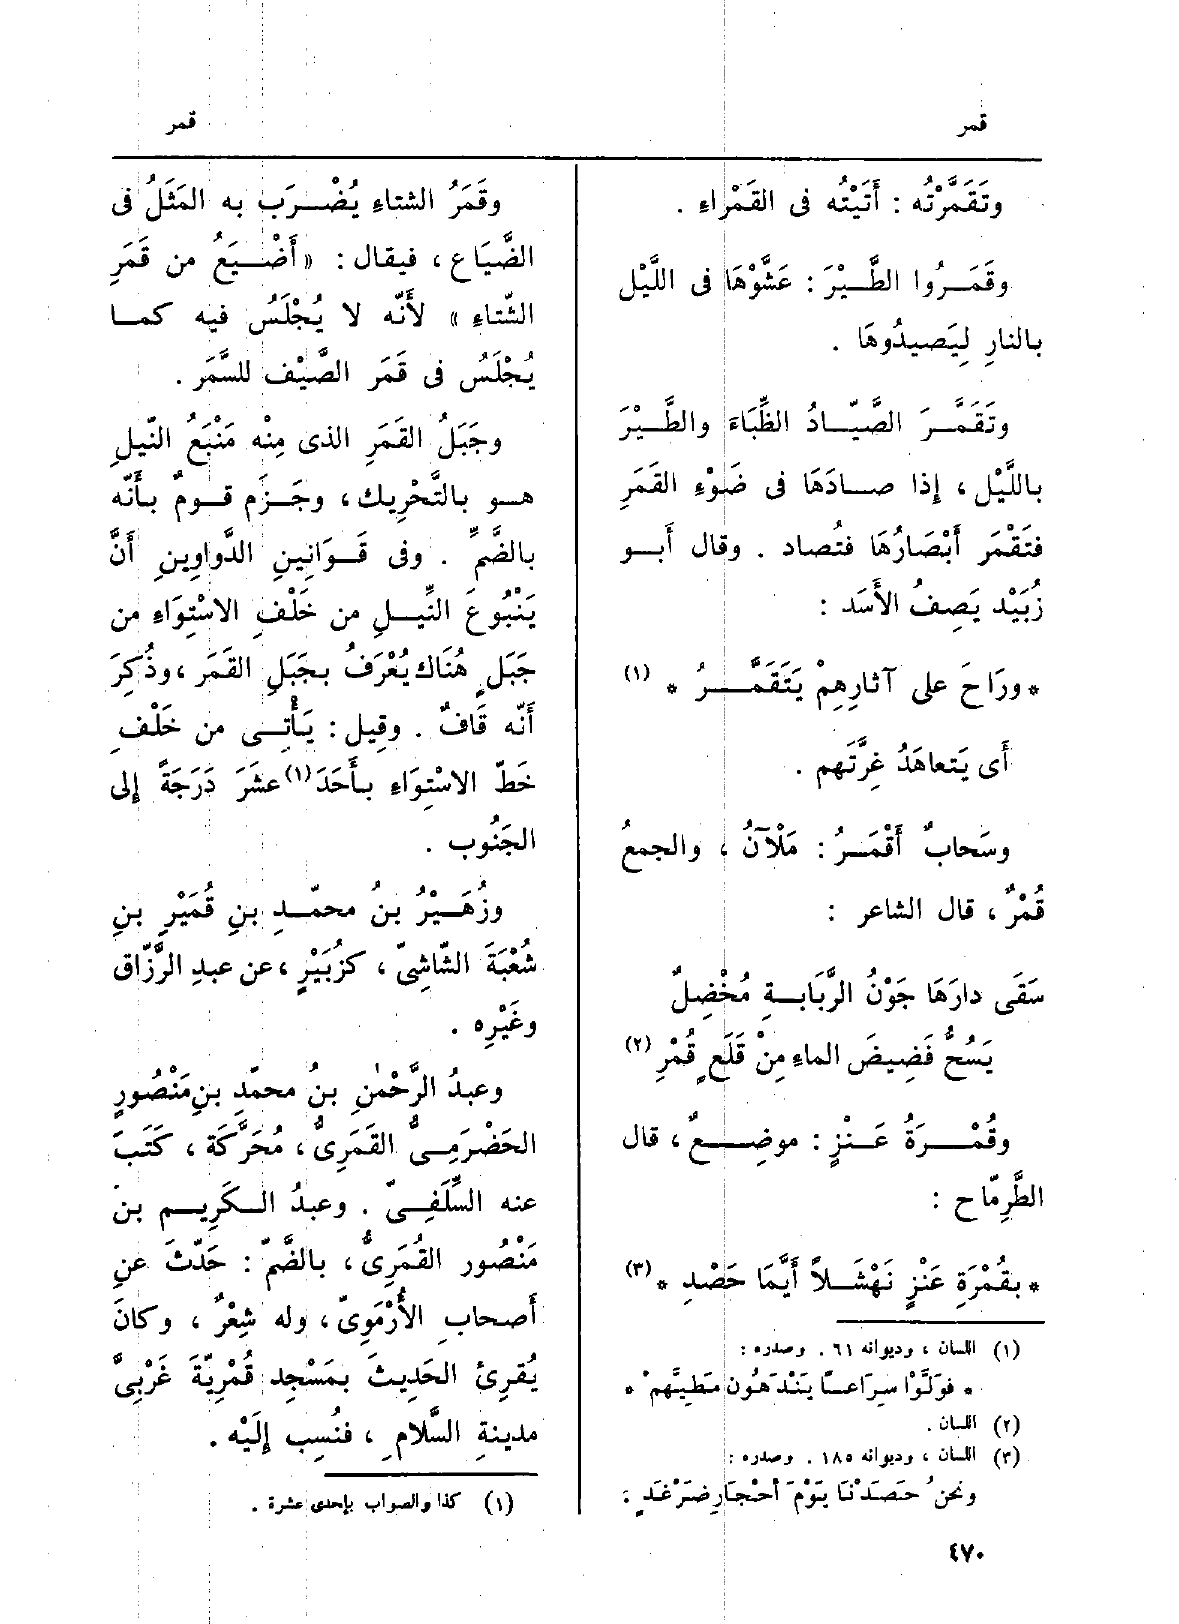 قمر
قمر
وتَقَمَّرْتُه : أَتَيْتُه فى القَمْراءِ .
وقَمَــرُوا الطَّــيْرَ : عَشَّوْهَا فى اللَّيْل
بالنارِ لِيَصيدُوهَا .
وتَقَمَّــرَ الصَّيّــادُ الظِّبَاءَ والطَّــيْرَ
بـاللَّيْل ، إذا صــادَهَا فى ضَوْءِ القَمَرِ
فتَقْمَر أَبْصَارُهَا فتُصاد . وقال أَبــو
زُبَيْد يَصِفُ الأَسَد :
* ورَاحَ على آثارِهِمْ يَتَقَمَّــــرُ * (١)
أَى يَتعاهَدُ غِرَّتَهم .
وسَحابٌ أَقْمَــرُ : مَلْآنُ ، والجمعُ
قُمْرٌ ، قال الشاعر :
سَقَى دارَهَا جَوْنُ الرَّبَابــةِ مُخْضِلٌ
يَسُحُّ فَضِيضَ الماءِ مِنْ قَلَعٍ قُمْرِ (٢)
وقُمْــرَةُ عَــنْزٍ : موضِــعٌ ، قال
الطَّرِمّاح :
* بقُمْرَةِ عَنْزٍ نَهْشَــلاً أَيَّمَا حَصْدِ * (٣)
(١) اللسان ، وديوانه ٦١ . وصدره :
* فوَلَّوْا سِرَاعــاً يَنْدَهُون مَطِيَّهمْ *
(٢) اللسان .
(٣) اللسان ، وديوانه ١٨٥ . وصدره :
ونحنُ حَصَدْنَا يَوْمَ أحْجَارِ ضَرْغَدٍ :
وقَمَرُ الشتاءِ يُضْــرَب به المَثَلُ فى
الضَّيَاع ، فيقال : « أَضْــيَعُ من قَمَرِ
الشّتاءِ » لأَنّه لا يُجْلَسُ فيه كمــا
يُجْلَسُ فى قَمَر الصَّيْف للسَّمَر .
وجَبَلُ القَمَرِ الذى مِنْه مَنْبَعُ النّيلِ
هــو بالتَّحْرِيك ، وجَــزَم قــومٌ بـأَنّه
بالضَّمِّ . وفى قَــوَانِينِ الدَّواوِينِ أَنَّ
يَنْبُوعَ النِّيــلِ من خَلْفِ الاسْتِوَاءِ من
جَبَلٍ هُنَاك يُعْرَفُ بـجَبَلِ القَمَر ، وذُكِرَ
أَنّه قَافٌ . وقِيل : يَـأْتِــى من خَلْفِ
خَطّ الاسْتِوَاءِ بـأَحَدَ (١) عشَرَ دَرَجَةً إلى
الجَنُوب .
وزُهَــيْرُ بنُ محمّــدِ بنِ قُمَيْرِ بنِ
شُعْبَةَ الشّاشِىّ ، كزُبَيْرٍ ، عن عبدِ الرَّزّاق
وغَيْرِه .
وعبدُ الرَّحْمٰنِ بنُ محمّدِ بنِ مَنْصُورٍ
الحَضْرَمِــىُّ القَمَرِىُّ ، مُحَرَّكَة ، كَتَبَ
عنه السِّلَفِــىّ . وعبدُ الــكَرِيــم بن
مَنْصُور القُمَرِىُّ ، بالضَّمّ : حَدّثَ عنِ
أَصحابِ الأُرْمَوِىّ ، وله شِعْرٌ ، وكانَ
يُقرِئُ الحَدِيثَ بمَسْجِد قُمْرِيّةَ غَرْبِىَّ
مدينةِ السَّلامِ ، فنُسِب إِلَيْه .
(١) كذا والصواب بإحدى عشرة .
٤٧٠